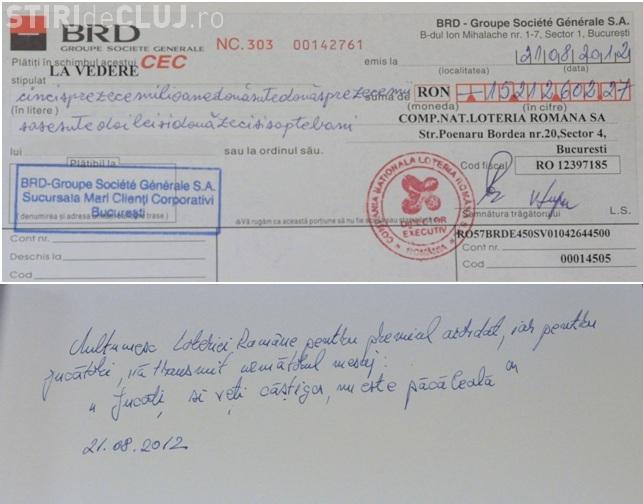 ȘTIRIdeCLUJ.ro
BRD
GROUPE SOCIETE GENERALE
NC. 303 00142761
BRD - Groupe Société Générale S.A.
B-dul Ion Mihalache nr. 1-7, Sector 1, București
Plătiți în schimbul acestui CEC
emis la
21 08 2012
stipulat
LA VEDERE
(localitatea) (data)
cincisprezecemilioanedouăsutedouăsprezecemii
suma de RON 15212602,27
(în litere)
(moneda) (în cifre)
sasesutedoileisidouăzecisisaptebani
COMP.NAT.LOTERIA ROMANA SA
Str.Poenaru Bordea nr.20,Sector 4,
Bucuresti
lui
sau la ordinul său.
Plătibil la
Cod fiscal RO 12397185
BRD-Groupe Société Générale S.A.
Sucursala Mari Clienți Corporativi
București
(denumirea și adresa trase)
COMPANIA NATIONALA LOTERIA ROMÂNĂ
DIRECTOR
EXECUTIV
ROMÂNIA
Vă rugăm ca această porțiune să nu fie
Semnătura trăgătorului L.S.
Cont nr.
RO57BRDE450SV01042644500
Deschis la
Cont nr.
Cod
Cod 00014505
Mulțumesc Loteriei Române pentru premiul acordat, iar pentru
jucători, vă transmit următorul mesaj:
" Jucați și veți câștiga, nu este păcăleală "
21.08.2012